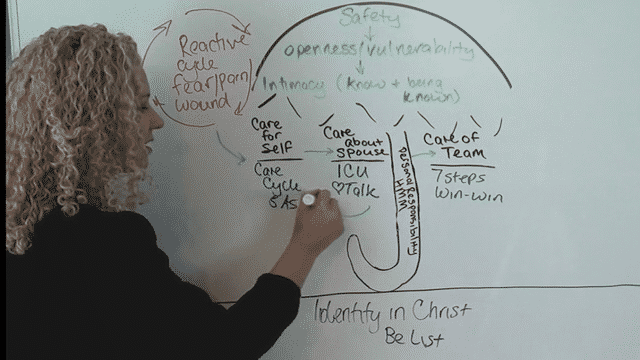 Reactive
cycle
fear/pain/
wound
Safety
openness/vulnerability
Intimacy (know + being
known)
Care
for
self
Care
Cycle
5 As
Care
about
spouse
ICU
♡Talk
Personal Responsibility
HMM
Care of
Team
7 steps
win-win
Identity in Christ
Be List